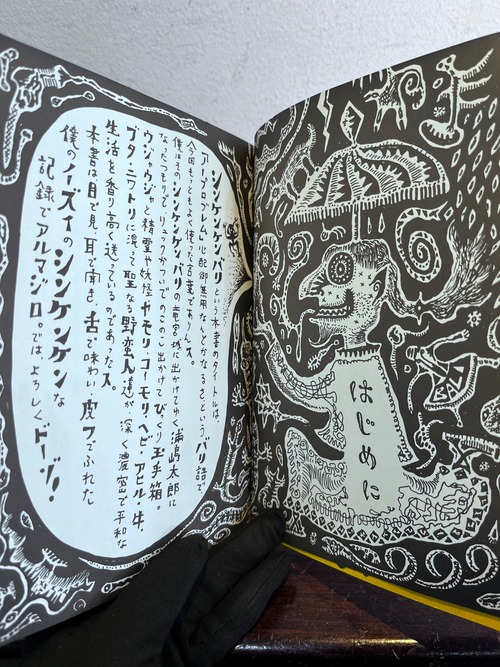 はじめに
シンケンケン バリ という本書のタイトルは、
アープロブレム」心配御無用なんとかなるさというバリ語で
今回もっともよく使った言葉でありんス。
僕はそのシンケンケン バリの竜宮城に出かけてゆく浦嶋太郎に
なったつもりでリュックかついでのこのこ出かけてびっくり玉手箱。
ウジャウジャと精霊や妖怪ヤモリ・コーモリ・ヘビ・アヒル・牛、
ブタ、ニワトリに混って聖なる野蛮人達が深く濃密で平和な
生活を香り高く送っているのであったス。
本書は目で見、耳で聞き、舌で味わい皮フでふれた
僕のノーズイのシンケンケンな
記録でアルマジロ。ではよろしくドーゾ!